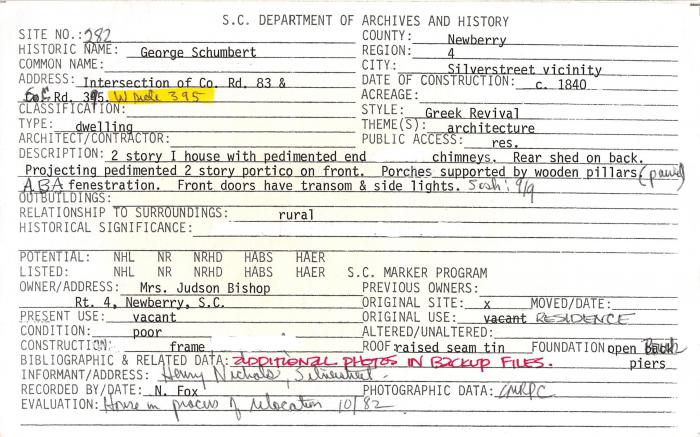 S.C. DEPARTMENT OF ARCHIVES AND HISTORY
SITE NO.: 282 COUNTY: Newberry
HISTORIC NAME: George Schumbert REGION: 4
COMMON NAME: CITY: Silverstreet vicinity
ADDRESS: Intersection of Co. Rd. 83 & DATE OF CONSTRUCTION: c. 1840
Rd. 395. W side 395 ACREAGE:
CLASSIFICATION: STYLE: Greek Revival
TYPE: dwelling THEME(S): architecture
ARCHITECT/CONTRACTOR: PUBLIC ACCESS: res.
DESCRIPTION: 2 story I house with pedimented end chimneys. Rear shed on back.
Projecting pedimented 2 story portico on front. Porches supported by wooden pillars (paired)
ABA fenestration. Front doors have transom & side lights. Sash: 9/9
OUTBUILDINGS:
RELATIONSHIP TO SURROUNDINGS: rural
HISTORICAL SIGNIFICANCE:
POTENTIAL: NHL NR NRHD HABS HAER
LISTED: NHL NR NRHD HABS HAER S.C. MARKER PROGRAM
OWNER/ADDRESS: Mrs. Judson Bishop PREVIOUS OWNERS:
Rt. 4, Newberry, S.C. ORIGINAL SITE: x MOVED/DATE:
PRESENT USE: vacant ORIGINAL USE: vacant RESIDENCE
CONDITION: poor ALTERED/UNALTERED:
CONSTRUCTION: frame ROOF: raised seam tin FOUNDATION open
BIBLIOGRAPHIC & RELATED DATA: ADDITIONAL PHOTOS IN BACKUP FILES. piers
INFORMANT/ADDRESS: Henry Nichols, Silverstreet.
RECORDED BY/DATE: N. Fox PHOTOGRAPHIC DATA: CMRPC
EVALUATION: House in process of relocation 10/82